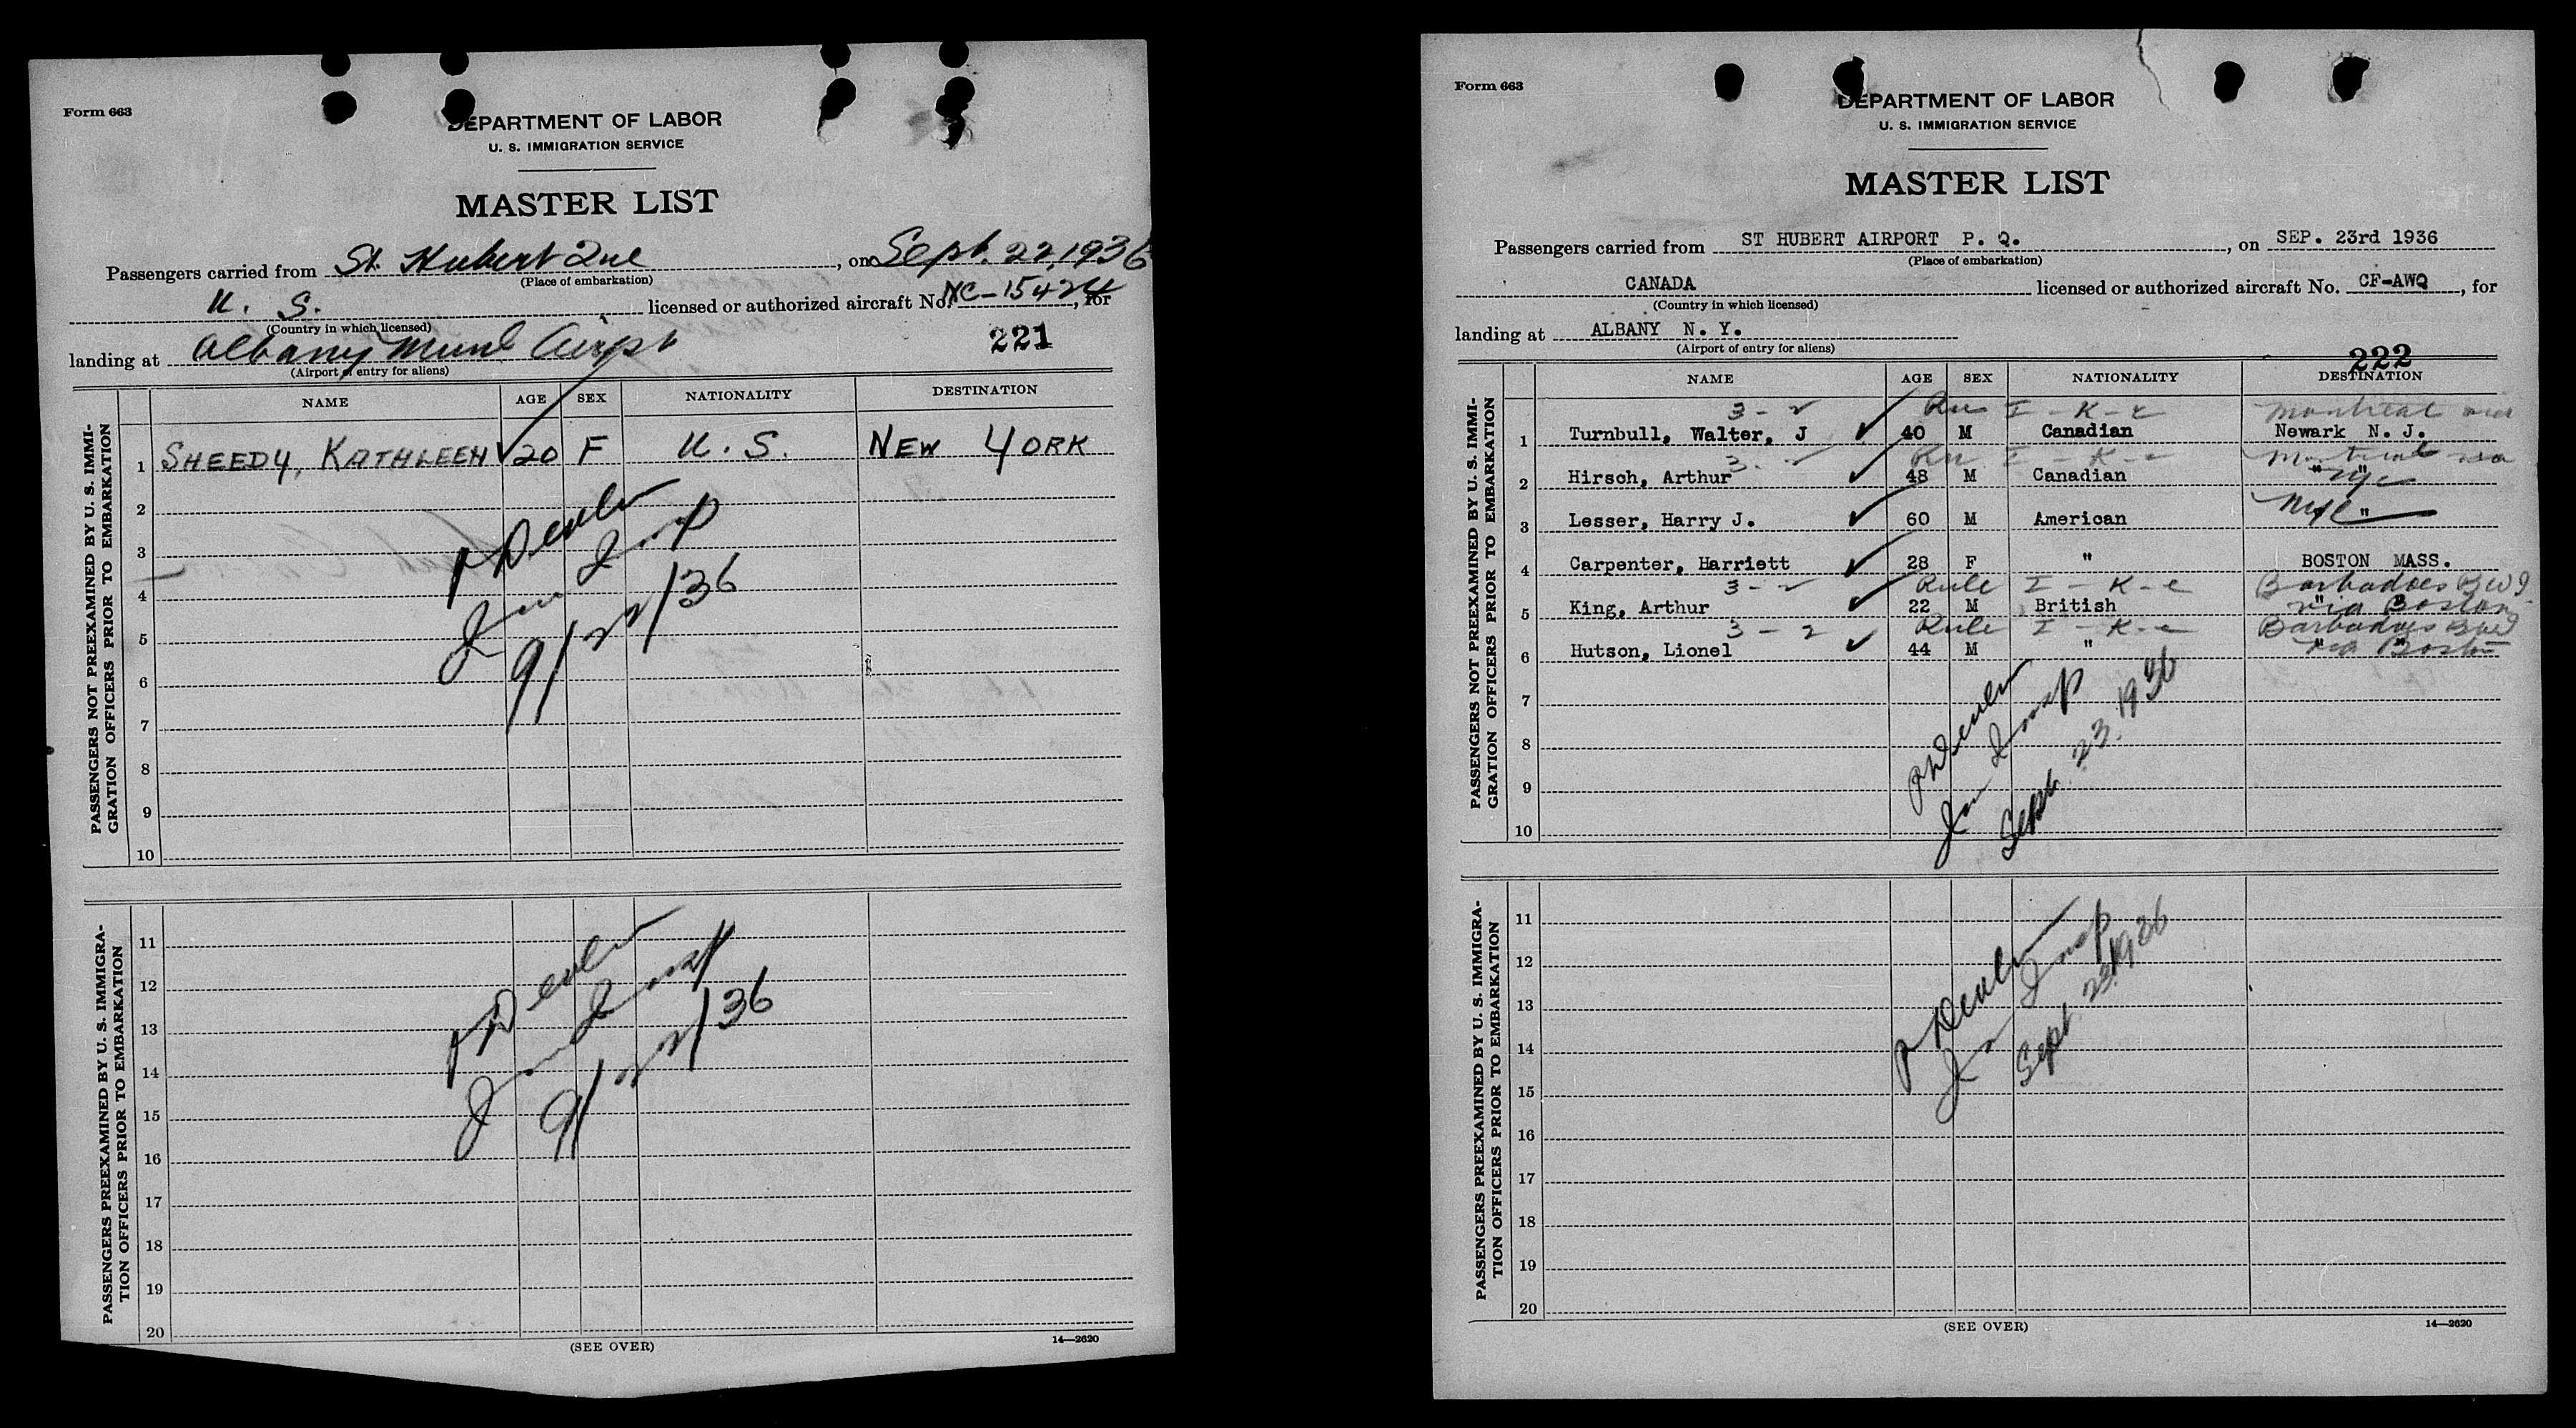 Form 663
DEPARTMENT OF LABOR
U. S. IMMIGRATION SERVICE
MASTER LIST
Passengers carried from St. Hubert Que, on Sept. 22, 1936
(Place of embarkation)
U. S. licensed or authorized aircraft No. NC-15424, for
(Country in which licensed)
landing at Albany Munl Airpt 221
(Airport of entry for aliens)
PASSENGERS NOT PREEXAMINED BY U. S. IMMIGRATION OFFICERS PRIOR TO EMBARKATION
NAME AGE SEX NATIONALITY DESTINATION
1 SHEEDY, KATHLEEN ✓ 20 F U.S. NEW YORK
2
3
4
5
6
7
8
9
10
Devlin
Imm Insp
9/22/36
PASSENGERS PREEXAMINED BY U. S. IMMIGRATION OFFICERS PRIOR TO EMBARKATION
11
12
13
14
15
16
17
18
19
20
Devlin
Imm Insp
9/22/36
(SEE OVER)
14—2620
Form 663
DEPARTMENT OF LABOR
U. S. IMMIGRATION SERVICE
MASTER LIST
Passengers carried from ST HUBERT AIRPORT P. Q., on SEP. 23rd 1936
(Place of embarkation)
CANADA licensed or authorized aircraft No. CF-AWQ, for
(Country in which licensed)
landing at ALBANY N. Y.
(Airport of entry for aliens)
222
PASSENGERS NOT PREEXAMINED BY U. S. IMMIGRATION OFFICERS PRIOR TO EMBARKATION
NAME AGE SEX NATIONALITY DESTINATION
3-2 Ru I-K-e Montreal via
1 Turnbull, Walter, J ✓ 40 M Canadian Newark N. J.
3-2 Ru I-K-e Montreal via
2 Hirsch, Arthur ✓ 48 M Canadian " " NYC
3 Lesser, Harry J. ✓ 60 M American NYC "
4 Carpenter, Harriett ✓ 28 F " BOSTON MASS.
3-2 Rule I-K-e Barbadoes BWI
5 King, Arthur ✓ 22 M British " " via Boston
3-2 Rule I-K-e Barbadoes BWI
6 Hutson, Lionel ✓ 44 M " " " via Boston
7
8
9
10
Devlin
Imm Insp
Sept. 23. 1936
PASSENGERS PREEXAMINED BY U. S. IMMIGRATION OFFICERS PRIOR TO EMBARKATION
11
12
13
14
15
16
17
18
19
20
Devlin
Imm Insp
Sept. 23. 1936
(SEE OVER)
14—2620